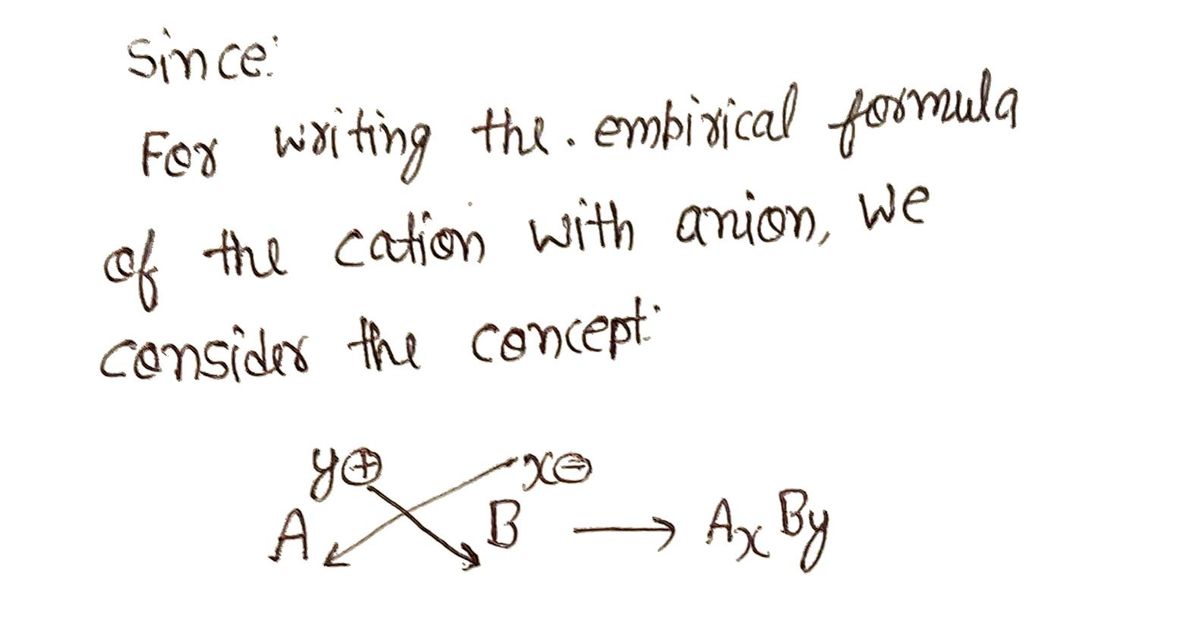 Since:
For writing the. empirical formula
of the cation with anion, we
consider the concept:
y⊕ x⊖
A B ⟶ AxBy